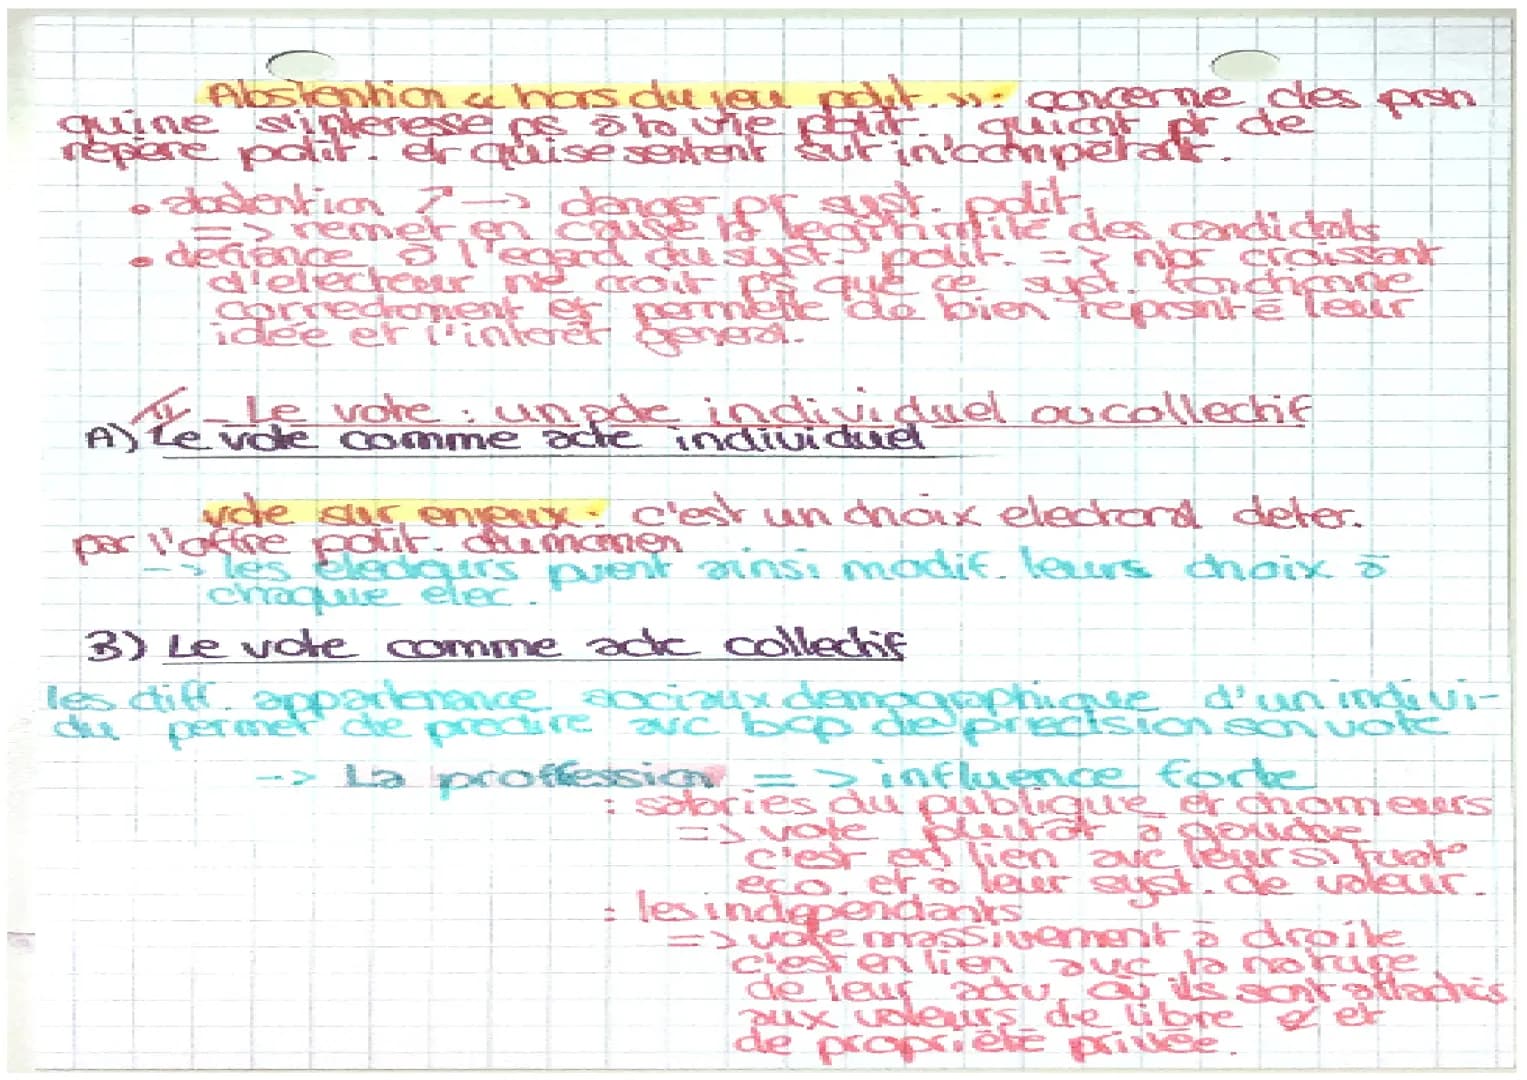 Abstention « hors du jeu polit. »: concerne des prsn
qui ne s'interesse ps à la vie polit. qui ont pt de
repère polit. et qui se sentent sut in'competant.
• abstention ↗ --> danger pr syst. polit
=> remet en cause la legitimité des candidats
• defiance à l'egard du syst. polit. => nbr croissant
d'electeur ne croit ps que ce syst. fonctionne
correctement et permette de bien reprsnté leur
idée et l'interêt general.
II _ Le vote : un acte individuel ou collectif
A) Le vote comme acte individuel
vote sur enjeux : c'est un choix electoral deter.
par l'offre polit. du momen
--> les electeurs pvent ainsi modif. leurs choix à
chaque elec.
B) Le vote comme acte collectif
les diff. appartenance sociaux demographique d'un indivi-
du permet de predire avc bcp de precision son vote
--> La proffession => influence forte
: salaries du publique et chomeurs
=> vote plutôt à gauche
c'est en lien avc leur situat°
eco. et à leur syst. de valeur.
: les independants
=> vote massivement à droite
c'est en lien avc la nature
de leur actv, où ils sont attachés
aux valeurs de libre é et
de propriété privée.